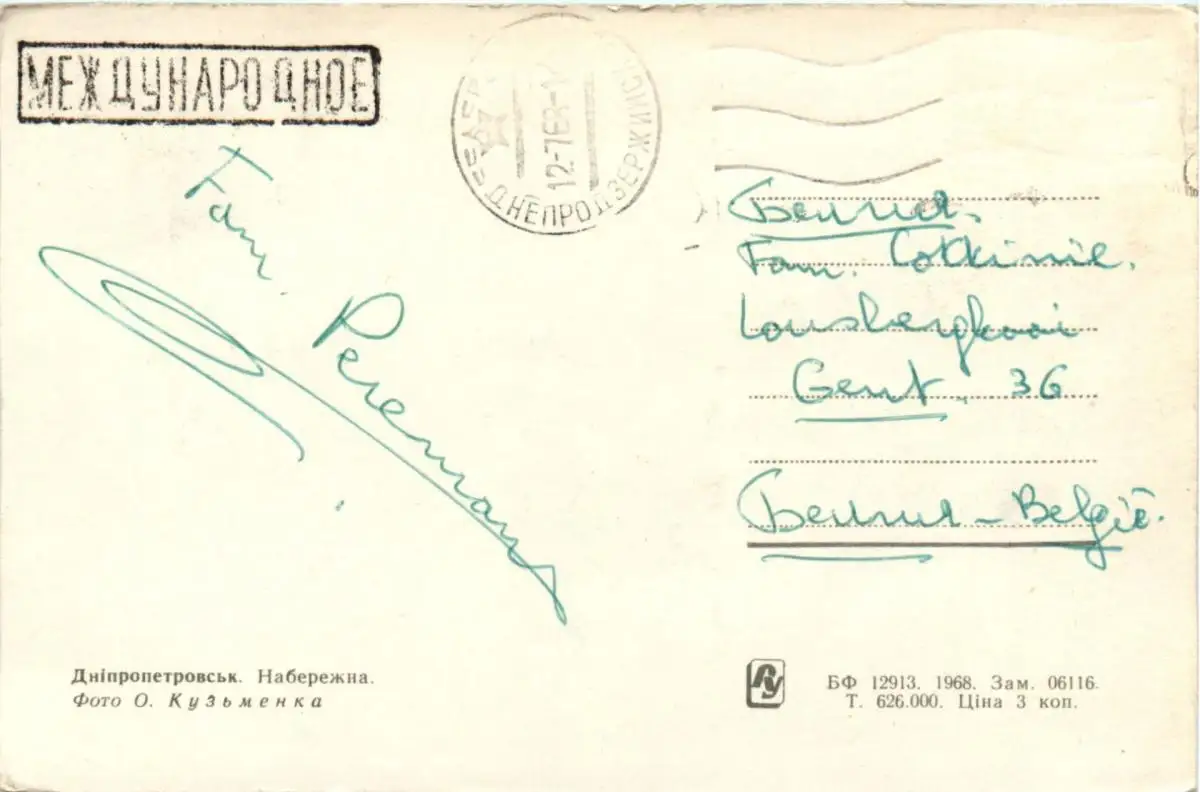 МЕЖДУНАРОДНОЕ
12-768-1
ДНЕПРОДЗЕРЖИНСК
Fam. Peremans
Бельгия.
Fam. Cokkinie.
Lousbergkaai
Gent. 36
Бельгия - België.
Дніпропетровськ. Набережна.
Фото О. Кузьменка
БФ 12913. 1968. Зам. 06116.
Т. 626.000. Ціна 3 коп.